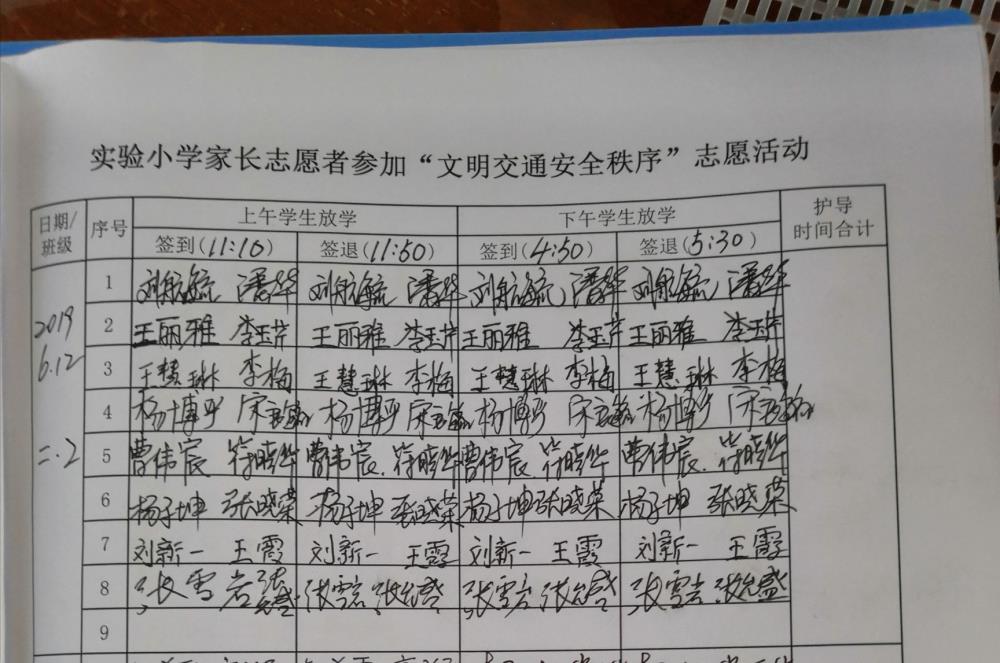 实验小学家长志愿者参加“文明交通安全秩序”志愿活动
日期/班级 序号 上午学生放学 下午学生放学 护导时间合计
签到(11:10) 签退(11:50) 签到(4:50) 签退(5:30)
2019 6.12 二.2
1 刘航毓 潘华 刘航毓 潘华 刘航毓 潘华 刘航毓 潘华
2 王丽雅 李玉芹 王丽雅 李玉芹 王丽雅 李玉芹 王丽雅 李玉芹
3 王慧琳 李梅 王慧琳 李梅 王慧琳 李梅 王慧琳 李梅
4 杨博平 宋 杨博平 宋 杨博平 宋 杨博平 宋
5 曹伟宸 符晓华 曹伟宸 符晓华 曹伟宸 符晓华 曹伟宸 符晓华
6 杨子坤 张晓荣 杨子坤 张晓荣 杨子坤 张晓荣 杨子坤 张晓荣
7 刘新一 王霞 刘新一 王霞 刘新一 王霞 刘新一 王霞
8 张雪岩 张允盛 张雪岩 张允盛 张雪岩 张允盛 张雪岩 张允盛
9